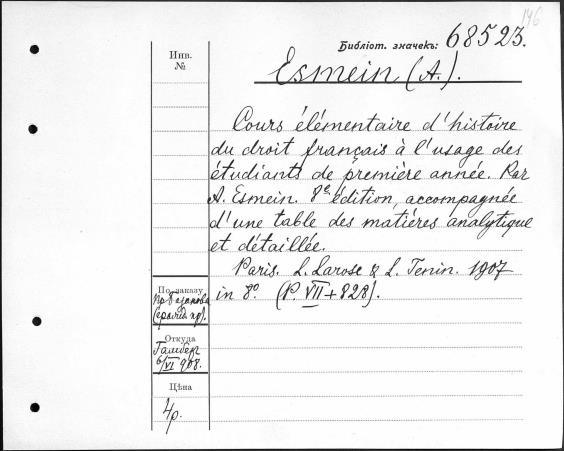 146
Библіот. значекъ: 68523.
Инв.
№
Esmein (A.).
Cours élémentaire d'histoire
du droit français à l'usage des
étudiants de première année. Par
A. Esmein. 8e édition, accompagnée
d'une table des matières analytique
et détaillée.
Paris. L. Larose & L. Tenin. 1907
in 8o. (P. VII + 828).
По заказу
Откуда
6/VI 908.
Цѣна
4р.